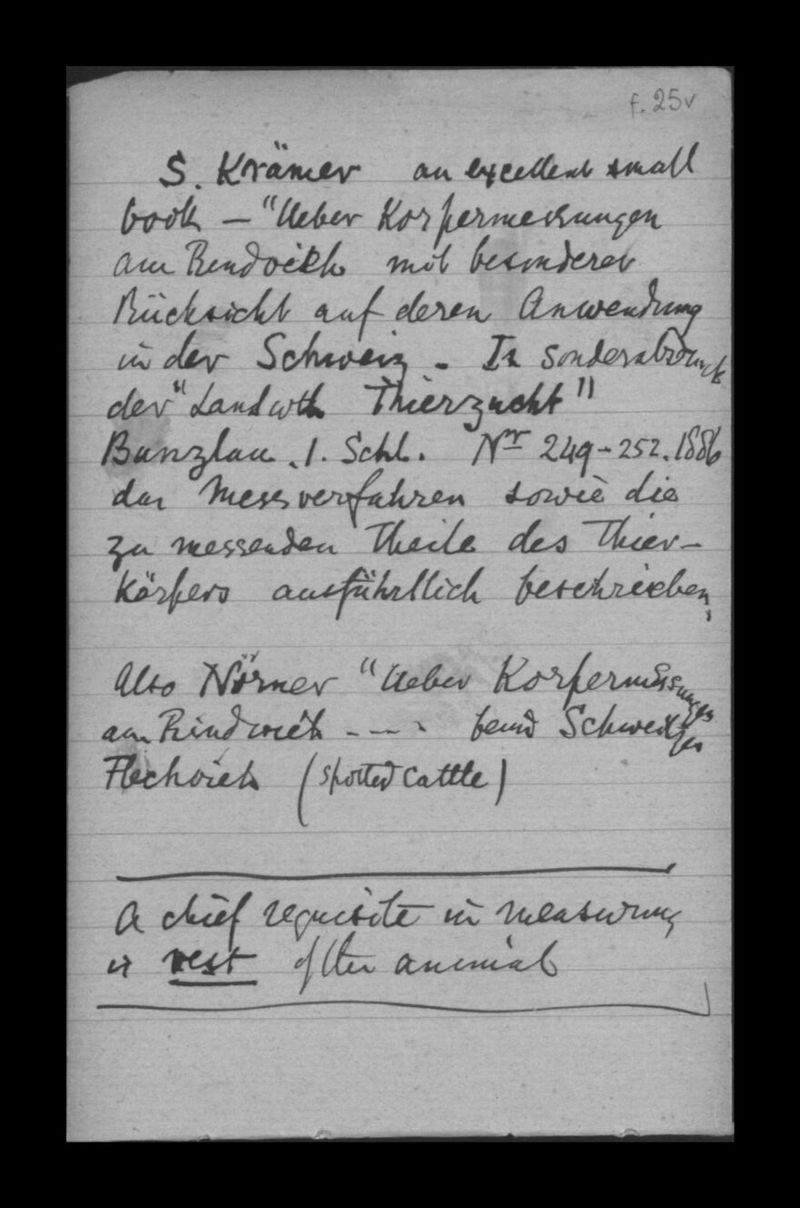 f. 25v
S. Krämer an excellent small
book — "Ueber Korpermessungen
am Rindvieh mit besonderer
Rücksicht auf deren Anwendung
in der Schweiz - In Sonderabdruck
der "Landwth Thierzucht"
Bunzlau . I. Schl. Nr 249-252. 1886
das Messverfahren sowie die
zu messenden Theile des Thier-
Körpers ausführllich beschrieben,
Also Nörner "Ueber Korpermessungen
am Rindvieh ---- Schweitzer
Fleckvieh (spotted cattle)
A chief requisite in measuring
is rest of the animal